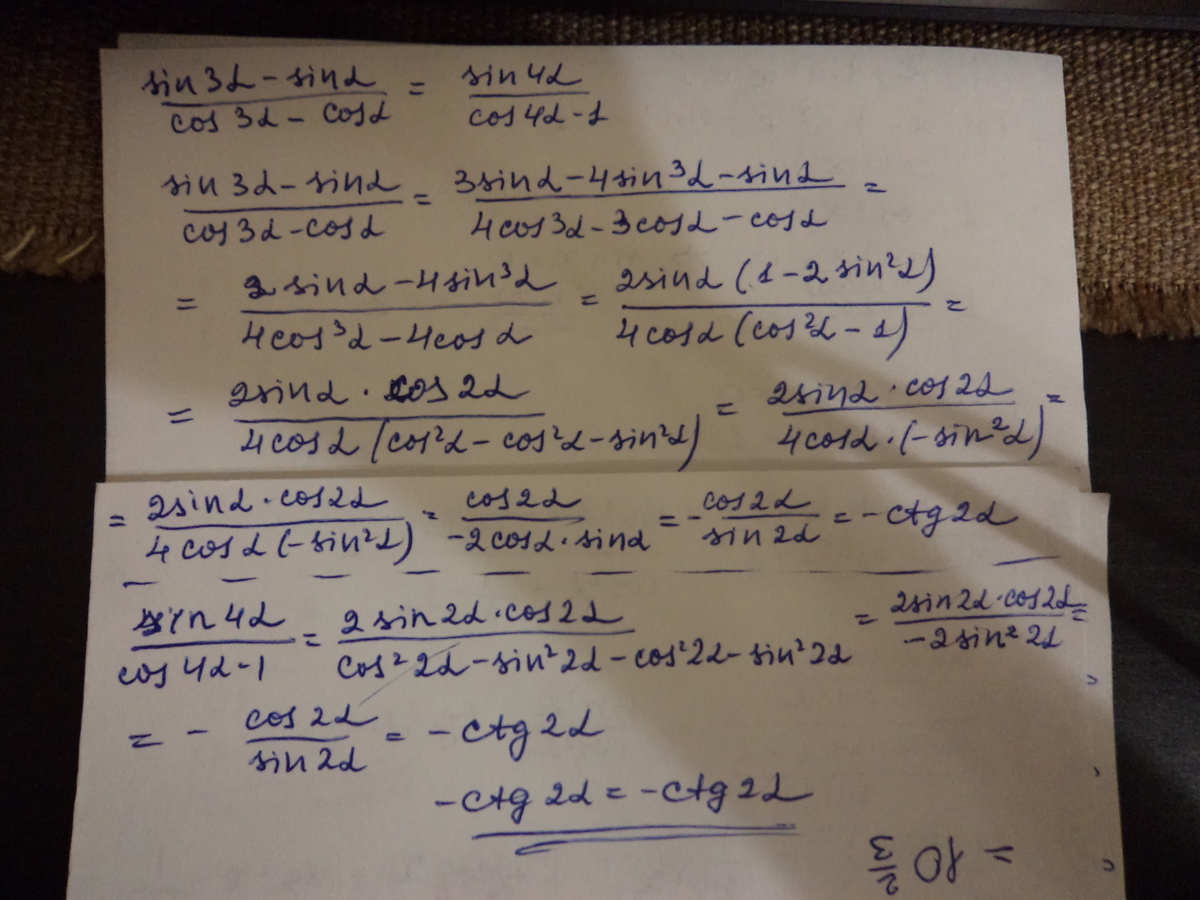 (sin 3α - sin α)/(cos 3α - cos α) = sin 4α/(cos 4α - 1)
(sin 3α - sin α)/(cos 3α - cos α) = (3 sin α - 4 sin³α - sin α)/(4 cos 3α - 3 cos α - cos α) =
= (2 sin α - 4 sin³α)/(4 cos³α - 4 cos α) = 2 sin α (1 - 2 sin²α)/(4 cos α (cos²α - 1)) =
= 2 sin α · cos 2α/(4 cos α (cos²α - cos²α - sin²α)) = 2 sin α · cos 2α/(4 cos α · (-sin²α)) =
= 2 sin α · cos 2α/(4 cos α (-sin²α)) = cos 2α/(-2 cos α · sin α) = - cos 2α/sin 2α = - ctg 2α
sin 4α/(cos 4α - 1) = 2 sin 2α · cos 2α/(cos² 2α - sin² 2α - cos² 2α - sin² 2α) = 2 sin 2α · cos 2α/(-2 sin² 2α) =
= - cos 2α/sin 2α = - ctg 2α
- ctg 2α = - ctg 2α
= 10 2/3